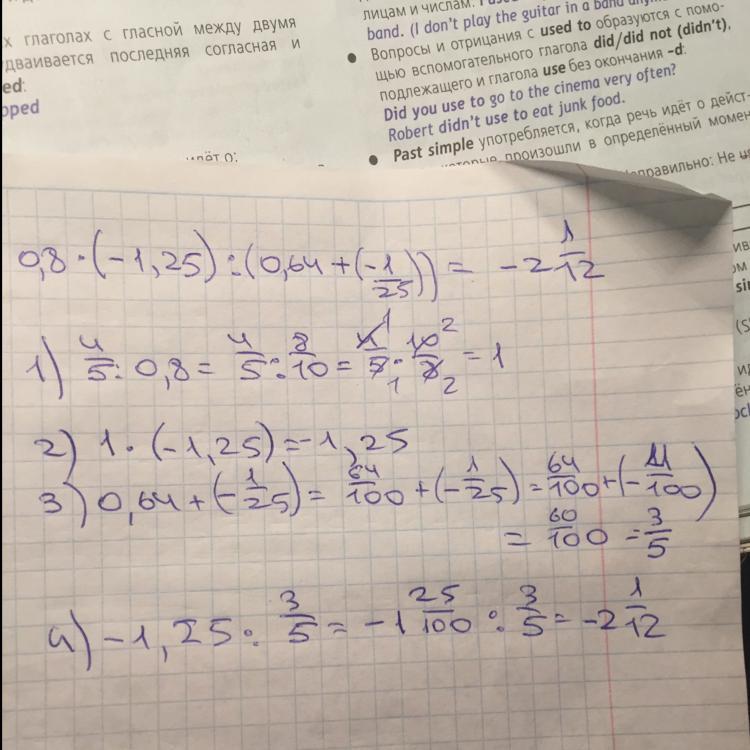 х глаголах с гласной между двумя
удваивается последняя согласная и
ed:
pped
лицам и числам.
band. (I don't play the guitar in a band
● Вопросы и отрицания с used to образуются с помо-
щью вспомогательного глагола did/did not (didn't),
подлежащего и глагола use без окончания -d:
Did you use to go to the cinema very often?
Robert didn't use to eat junk food.
● Past simple употребляется, когда речь идёт о дейст-
произошли в определённый момен
Не
0,8 · (-1,25) : (0,64 + (-1/25)) = -2 1/12
1) 4/5 : 0,8 = 4/5 : 8/10 = 4/5 · 10/8 = 1
2) 1 · (-1,25) = -1,25
3) 0,64 + (-1/25) = 64/100 + (-1/25) = 64/100 + (-4/100)
= 60/100 = 3/5
4) -1,25 : 3/5 = -1 25/100 : 3/5 = -2 1/12